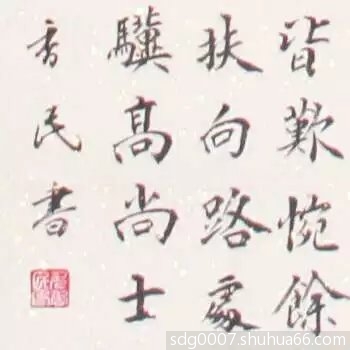 皆歎惋餘
扶向路處
驥高尚士
民書
sdg0007.shuhua66.com